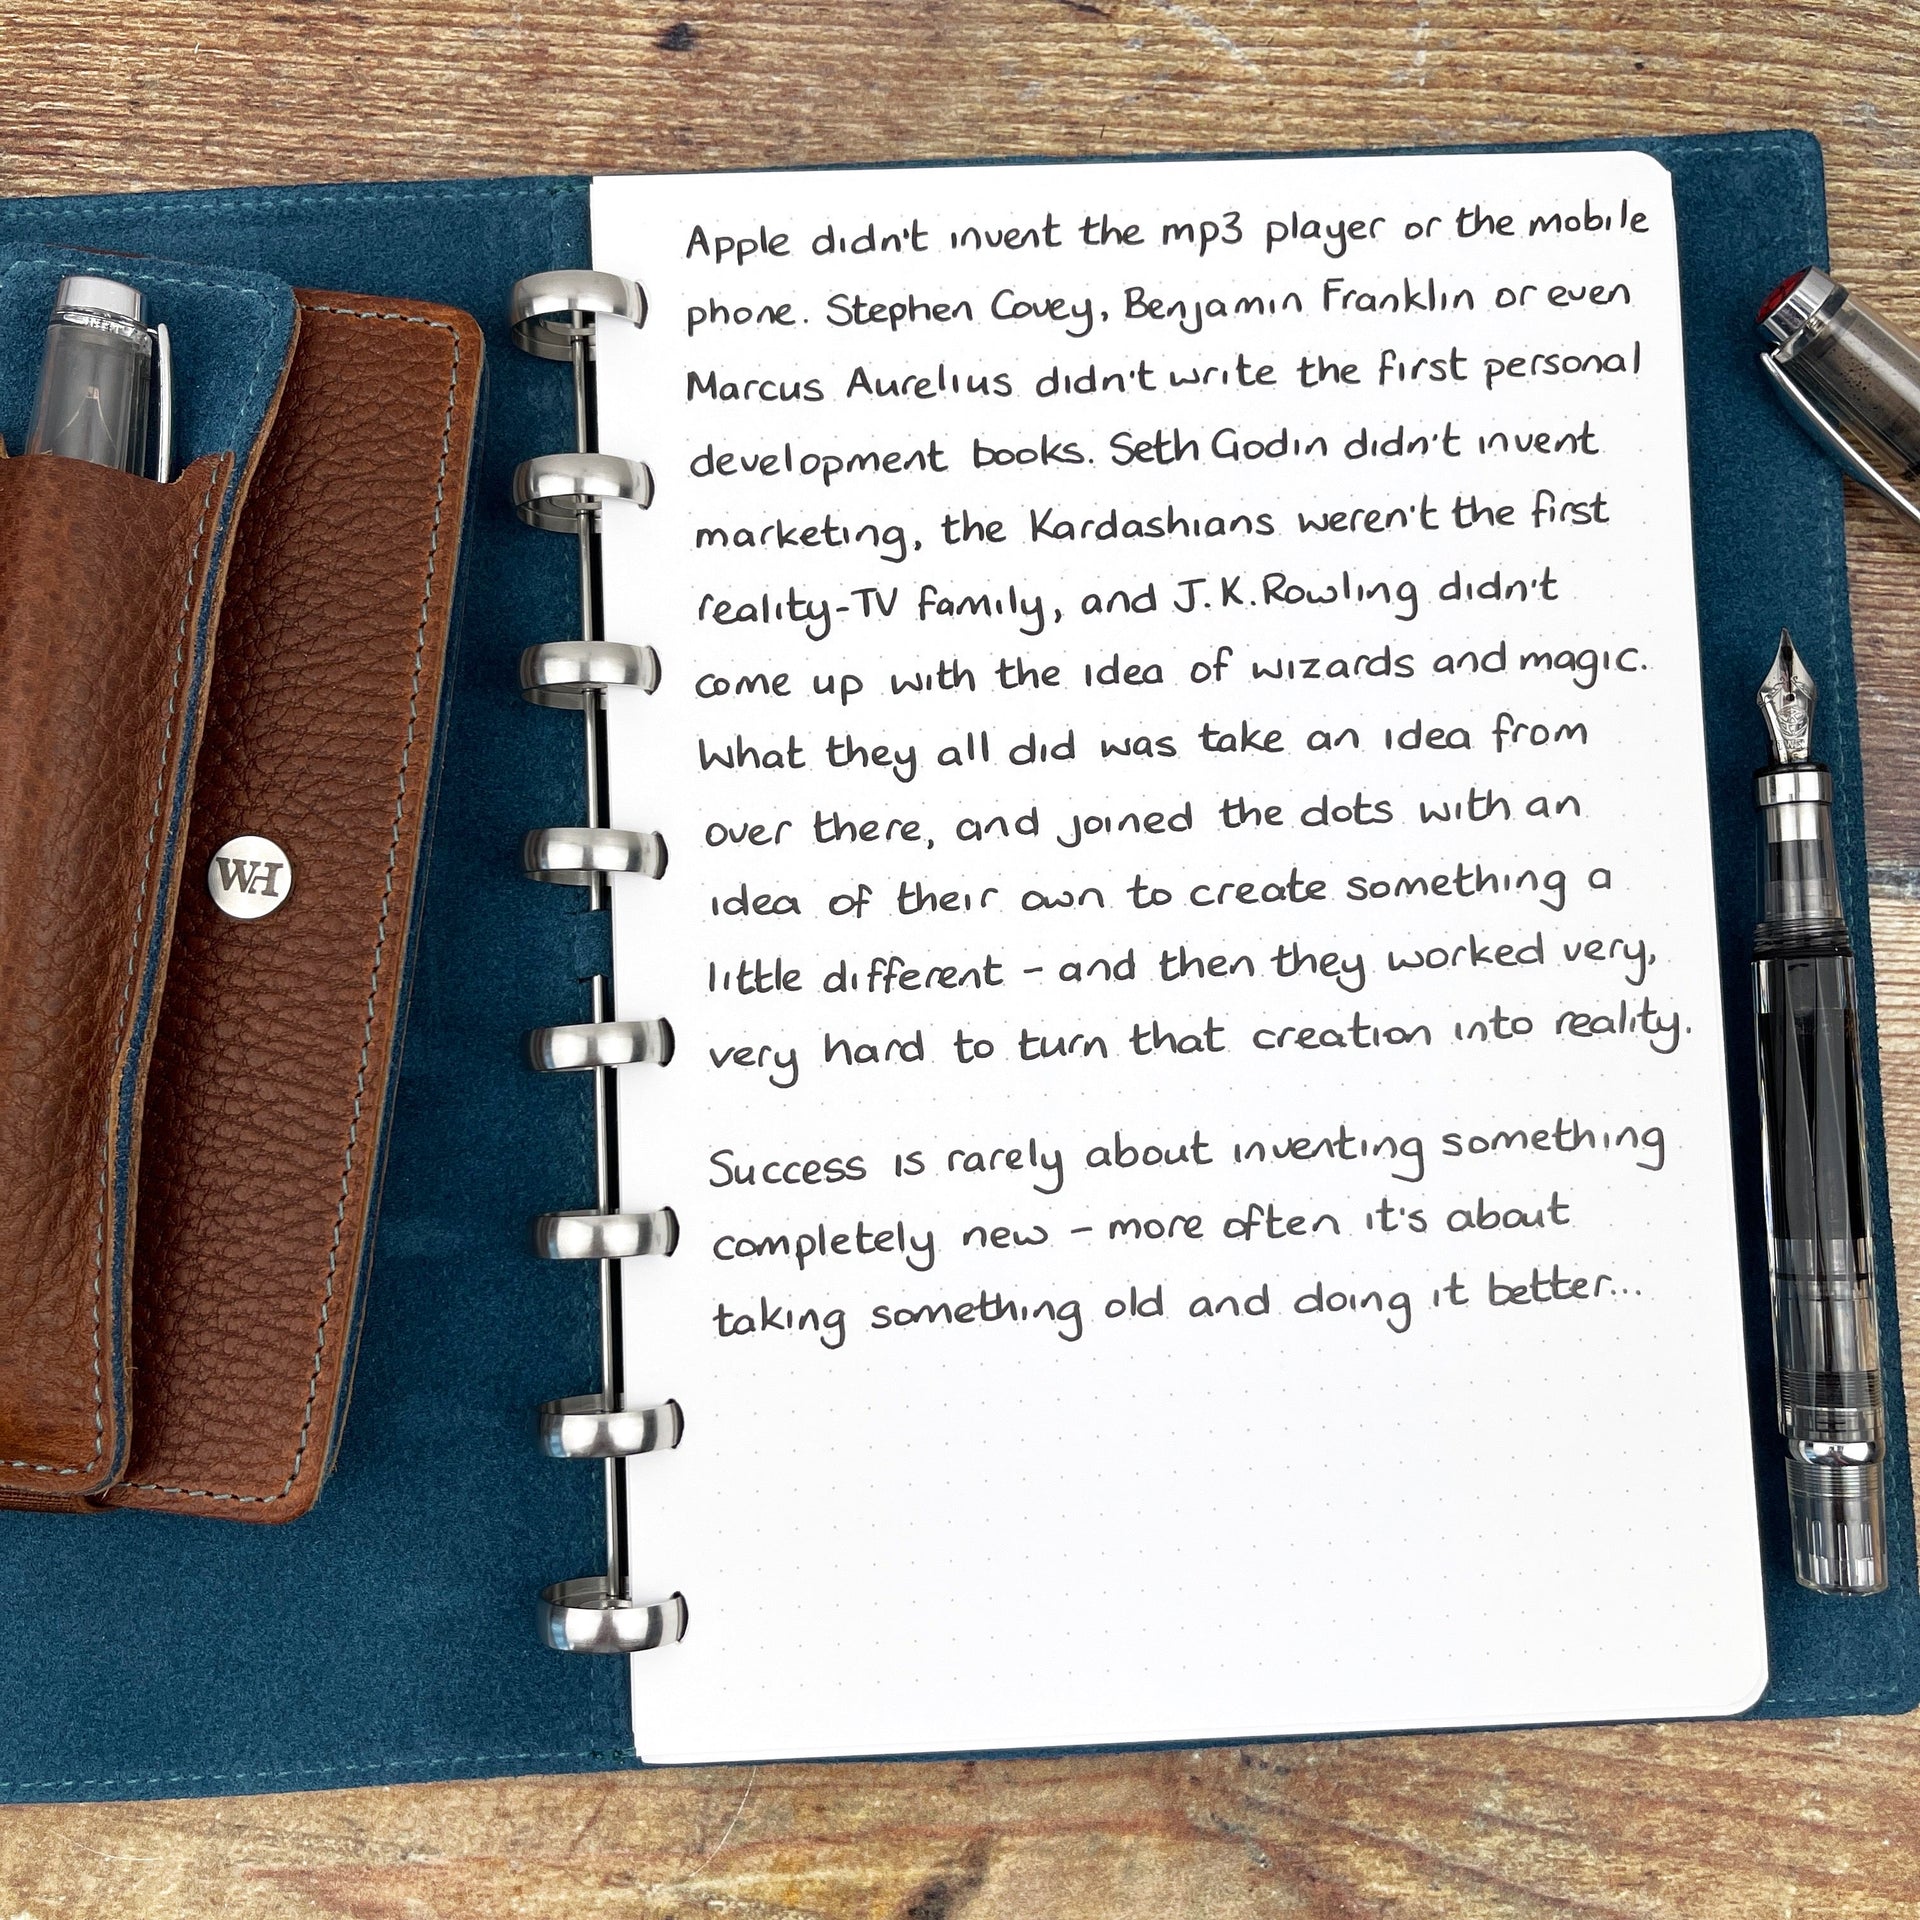 Apple didn't invent the mp3 player or the mobile
phone. Stephen Covey, Benjamin Franklin or even
Marcus Aurelius didn't write the first personal
development books. Seth Godin didn't invent
marketing, the Kardashians weren't the first
reality-TV family, and J.K.Rowling didn't
come up with the idea of wizards and magic.
What they all did was take an idea from
over there, and joined the dots with an
idea of their own to create something a
little different - and then they worked very,
very hard to turn that creation into reality.
Success is rarely about inventing something
completely new - more often it's about
taking something old and doing it better...
WH